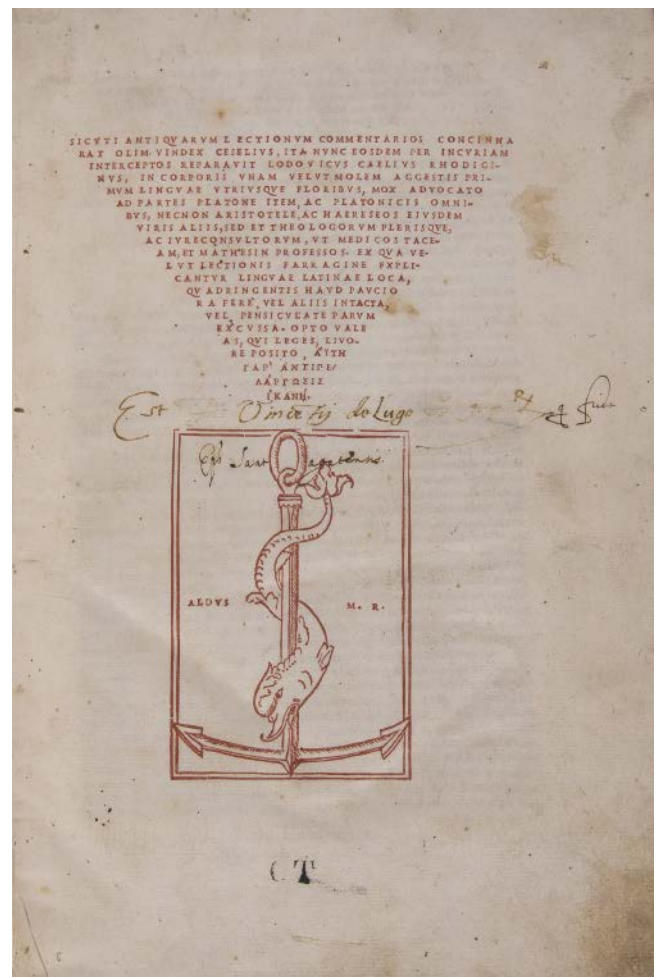 SICVTI ANTIQVARVM LECTIONVM COMMENTARIOS CONCINNA
RAT OLIM VINDEX CESELIVS, ITA NVNC EOSDEM PER INCVRIAM
INTERCEPTOS REPARAVIT LODOVICVS CAELIVS RHODIGI-
NVS, IN CORPORIS VNAM VELVT MOLEM AGGESTIS PRI-
MVM LINGVAE VTRIVSQVE FLORIBVS, MOX ADVOCATO
AD PARTES PLATONE ITEM, AC PLATONICIS OMNI-
BVS, NECNON ARISTOTELE, AC HAERESEOS EIVSDEM
VIRIS ALIIS, SED ET THEOLOGORVM PLERISQVE,
AC IVRECONSVLTORVM, VT MEDICOS TACE-
AM, ET MATHESIN PROFESSOS. EX QVA VE-
LVT LECTIONIS FARRAGINE EXPLI-
CANTVR LINGVAE LATINAE LOCA,
QVADRINGENTIS HAVD PAVCIO
RA FERE, VEL ALIIS INTACTA,
VEL PENSICVLATE PARVM
EXCVSSA. OPTO VALE
AS, QVI LEGES, LIVO-
RE POSITO, ἈΥΤΗ
ΓᾺΡ ἈΝΤΙΠΕ/
ΛΆΡΓΩΣΙΣ
ἹΚΑΝΉ.
Est de Lugo
ALDVS M. R.
CT